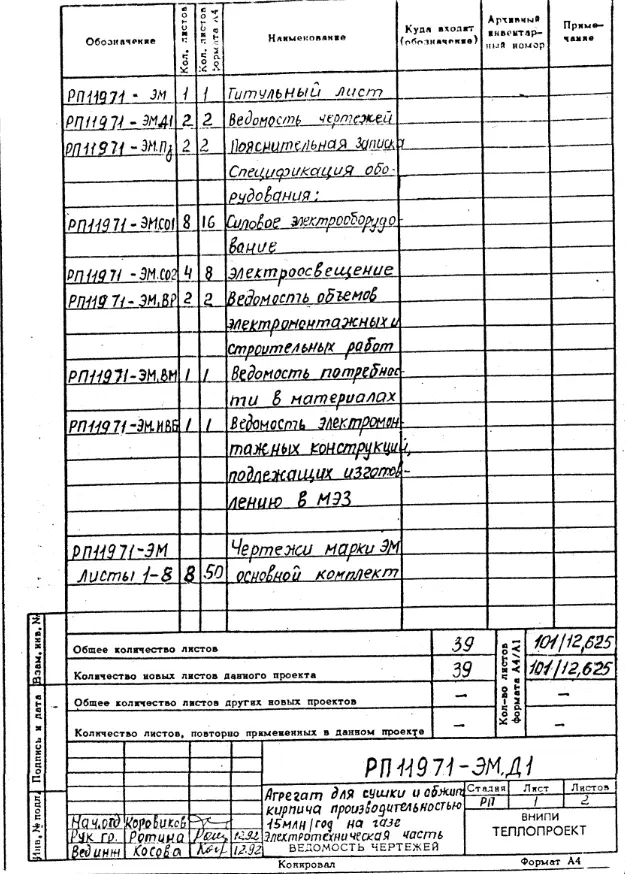 Обозначение Кол. листов Кол. листов формата А4 Наименование Куда входит (обозначение) Архивный инвентарный номер Примечание
РП11971 - ЭМ 1 1 Титульный лист
РП11971 - ЭМ.Д1 2 2 Ведомость чертежей
РП11971 - ЭМ.ПЗ 2 2 Пояснительная записка
Спецификация обо-
рудования:
РП11971-ЭМ.СО1 8 16 Силовое электрооборудо-
вание
РП11971 -ЭМ.СО2 4 8 электроосвещение
РП11971-ЭМ.ВР 2 2 Ведомость объемов
электромонтажных и
строительных работ
РП11971-ЭМ.ВМ 1 1 Ведомость потребнос-
ти в материалах
РП11971-ЭМ.ИВБ 1 1 Ведомость электромон-
тажных конструкций,
подлежащих изготов-
лению в МЭЗ
РП11971-ЭМ Чертежи марки ЭМ
Листы 1-8 8 50 основной комплект
Общее количество листов 39 101/12,625
Количество новых листов данного проекта 39 101/12,625
Общее количество листов других новых проектов – –
Количество листов, повторно примененных в данном проекте – –
Кол-во листов формата А4/А1
Взам. инв. №
Подпись и дата
Инв. № подл.
РП11971-ЭМ.Д1
Агрегат для сушки и обжига
кирпича производительностью
15млн/год на газе
Электротехническая часть
ВЕДОМОСТЬ ЧЕРТЕЖЕЙ
Стадия Лист Листов
РП 1 2
ВНИПИ
ТЕПЛОПРОЕКТ
Нач.отд Коровиков
Рук гр. Ротина 12.92
Вед инж Косова 12.92
Копировал Формат А4